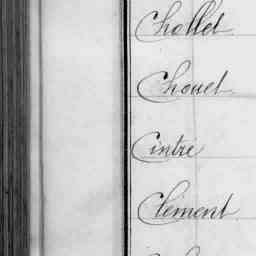 Chollet
Chouet
Cintré
Clément